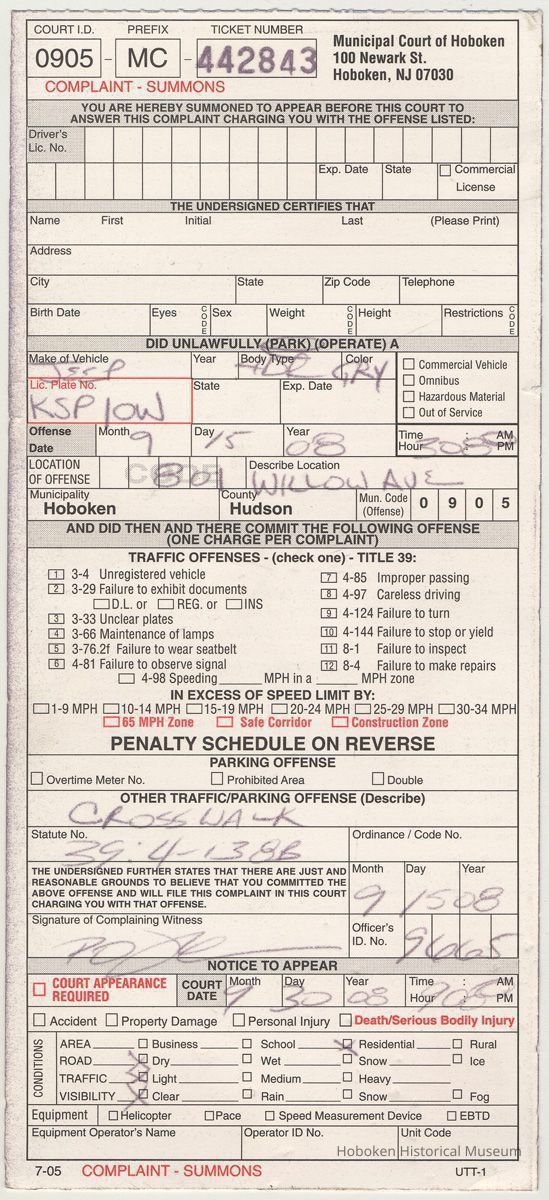 COURT I.D. PREFIX TICKET NUMBER
0905 - MC - 442843
Municipal Court of Hoboken
100 Newark St.
Hoboken, NJ 07030
COMPLAINT - SUMMONS
YOU ARE HEREBY SUMMONED TO APPEAR BEFORE THIS COURT TO
ANSWER THIS COMPLAINT CHARGING YOU WITH THE OFFENSE LISTED:
Driver's
Lic. No.
Exp. Date State Commercial
License
THE UNDERSIGNED CERTIFIES THAT
Name First Initial Last (Please Print)
Address
City State Zip Code Telephone
Birth Date Eyes CODE Sex Weight CODE Height Restrictions CODE
DID UNLAWFULLY (PARK) (OPERATE) A
Make of Vehicle Year Body Type Color
JEEP GRY
Commercial Vehicle
Omnibus
Hazardous Material
Out of Service
Lic. Plate No. State Exp. Date
KSP10W
Offense Month Day Year Time AM
Date 9 15 08 Hour PM
LOCATION Describe Location
OF OFFENSE 801 WILLOW AVE
Municipality County Mun. Code
Hoboken Hudson (Offense) 0 9 0 5
AND DID THEN AND THERE COMMIT THE FOLLOWING OFFENSE
(ONE CHARGE PER COMPLAINT)
TRAFFIC OFFENSES - (check one) - TITLE 39:
1 3-4 Unregistered vehicle
2 3-29 Failure to exhibit documents
D.L. or REG. or INS
3 3-33 Unclear plates
4 3-66 Maintenance of lamps
5 3-76.2f Failure to wear seatbelt
6 4-81 Failure to observe signal
7 4-85 Improper passing
8 4-97 Careless driving
9 4-124 Failure to turn
10 4-144 Failure to stop or yield
11 8-1 Failure to inspect
12 8-4 Failure to make repairs
4-98 Speeding MPH in a MPH zone
IN EXCESS OF SPEED LIMIT BY:
1-9 MPH 10-14 MPH 15-19 MPH 20-24 MPH 25-29 MPH 30-34 MPH
65 MPH Zone Safe Corridor Construction Zone
PENALTY SCHEDULE ON REVERSE
PARKING OFFENSE
Overtime Meter No. Prohibited Area Double
OTHER TRAFFIC/PARKING OFFENSE (Describe)
CROSSWALK
Statute No. Ordinance / Code No.
39:4-138B
THE UNDERSIGNED FURTHER STATES THAT THERE ARE JUST AND
REASONABLE GROUNDS TO BELIEVE THAT YOU COMMITTED THE
ABOVE OFFENSE AND WILL FILE THIS COMPLAINT IN THIS COURT
CHARGING YOU WITH THAT OFFENSE.
Month Day Year
9 15 08
Signature of Complaining Witness
Officer's
ID. No. 96665
NOTICE TO APPEAR
COURT APPEARANCE
REQUIRED
COURT
DATE
Month Day Year Time AM
9 30 08 Hour PM
Accident Property Damage Personal Injury Death/Serious Bodily Injury
CONDITIONS
AREA Business School Residential Rural
ROAD Dry Wet Snow Ice
TRAFFIC Light Medium Heavy
VISIBILITY Clear Rain Snow Fog
Equipment Helicopter Pace Speed Measurement Device EBTD
Equipment Operator's Name Operator ID No. Unit Code
Hoboken Historical Museum
7-05 COMPLAINT - SUMMONS UTT-1